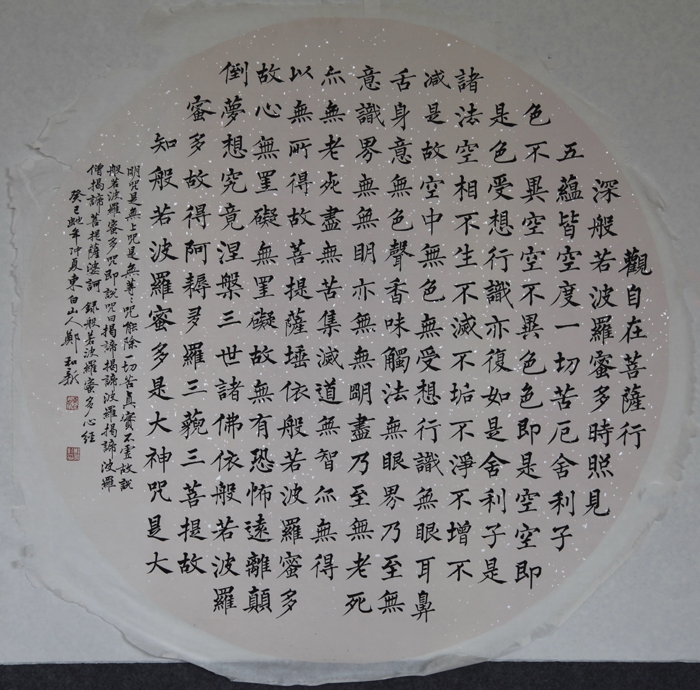 觀自在菩薩行
深般若波羅蜜多時照見
五蘊皆空度一切苦厄舍利子
色不異空空不異色色即是空空即
是色受想行識亦復如是舍利子是
諸法空相不生不滅不垢不淨不增不
減是故空中無色無受想行識無眼耳鼻
舌身意無色聲香味觸法無眼界乃至無
意識界無無明亦無無明盡乃至無老死
亦無老死盡無苦集滅道無智亦無得
以無所得故菩提薩埵依般若波羅蜜多
故心無罣礙無罣礙故無有恐怖遠離顛
倒夢想究竟涅槃三世諸佛依般若波羅
蜜多故得阿耨多羅三藐三菩提故
知般若波羅蜜多是大神咒是大
明咒是無上咒是無等:咒能除一切苦真實不虛故說
般若波羅蜜多咒即說咒曰揭諦揭諦波羅揭諦波羅
僧揭諦菩提薩婆訶 錄般若波羅蜜多心經
癸巳蛇年仲夏東白山人鄭和新